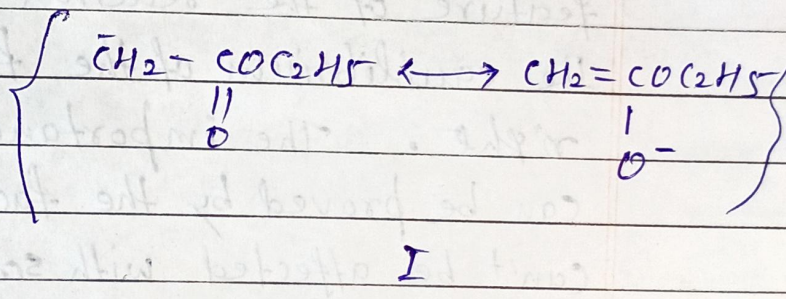 C̄H2 - COC2H5 ⟷ CH2 = COC2H5
|| |
O O⁻
I